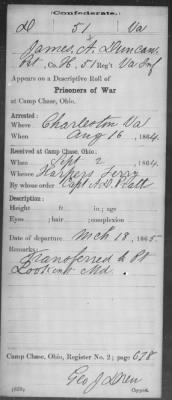 Confederate.
D 51 Va
James A. Duncan
Pvt, Co. H, 51 Reg't Va Inf
Appears on a Descriptive Roll of
Prisoners of War
at Camp Chase, Ohio.
Arrested:
Where Charleston Va
When Aug 16, 1864.
Received at Camp Chase, Ohio:
When Sept 2, 1864.
Where Harpers Ferry
By whose order Capt A. D. Platt
Description:
Height ft. in.; age
Eyes ; hair ; complexion
Date of departure Mch 18, 1865.
Remarks:
Transferred to Pt
Lookout Md.
Camp Chase, Ohio, Register No. 2; page 678
Geo J
Copyist.